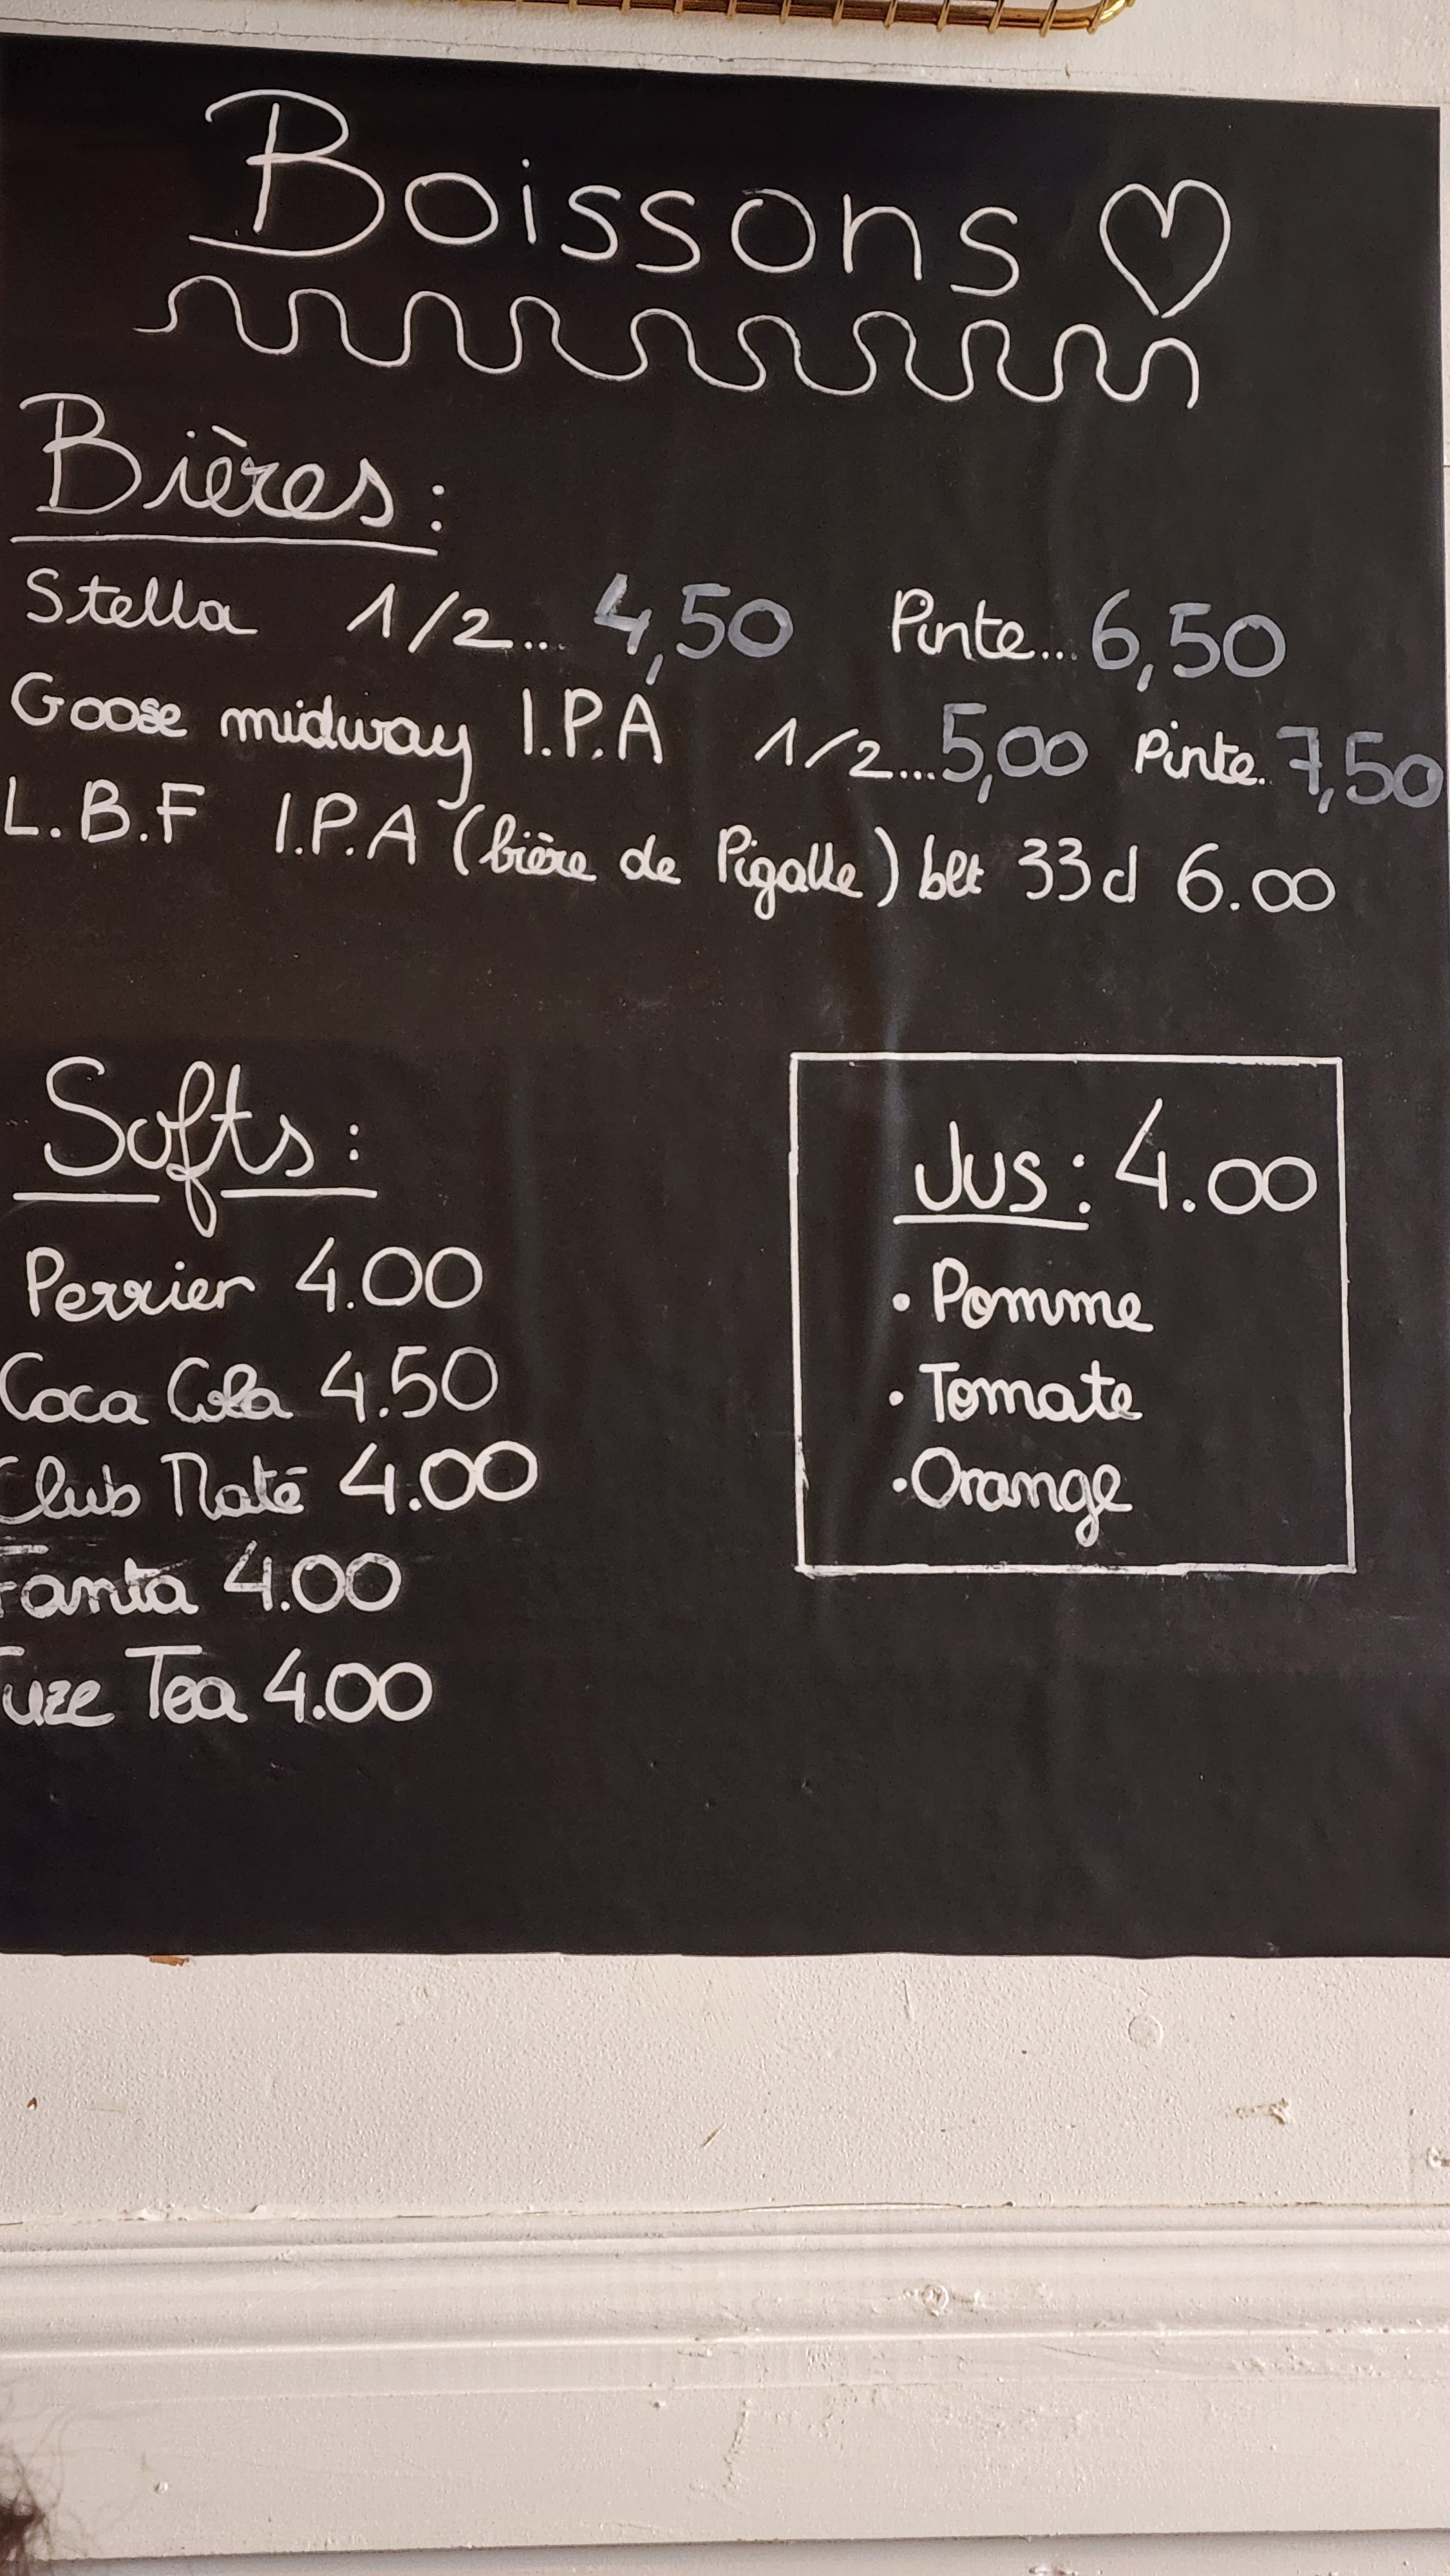 Boissons
Bières :
Stella 1/2... 4,50 Pinte... 6,50
Goose midway I.P.A 1/2... 5,00 Pinte.. 7,50
L.B.F I.P.A (bière de Pigalle) blt 33cl 6.00
Softs :
Perrier 4.00
Coca Cola 4.50
Club Maté 4.00
Fanta 4.00
Fuze Tea 4.00
Jus : 4.00
• Pomme
• Tomate
• Orange